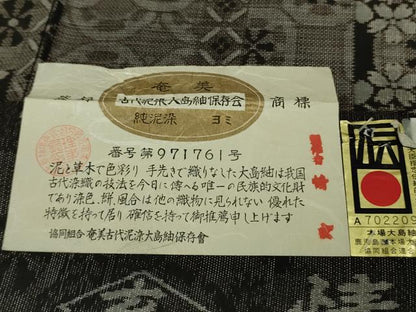 奄美
古代泥染大島紬保存会
商標
純泥染 ヨミ
番号第971761号
泥と草木で色彩り 手先きで織りなした大島紬は我国
古代染織の技法を今日に傳へる唯一の民族的文化財
であり染色、鮮、風合は他の織物に見られない優れた
特徴を持って居り確信を持って御推薦申し上げます
協同組合 奄美古代泥染大島紬保存會
伝
A702205
本場大島紬
鹿児島県本場大島
協同組合連合